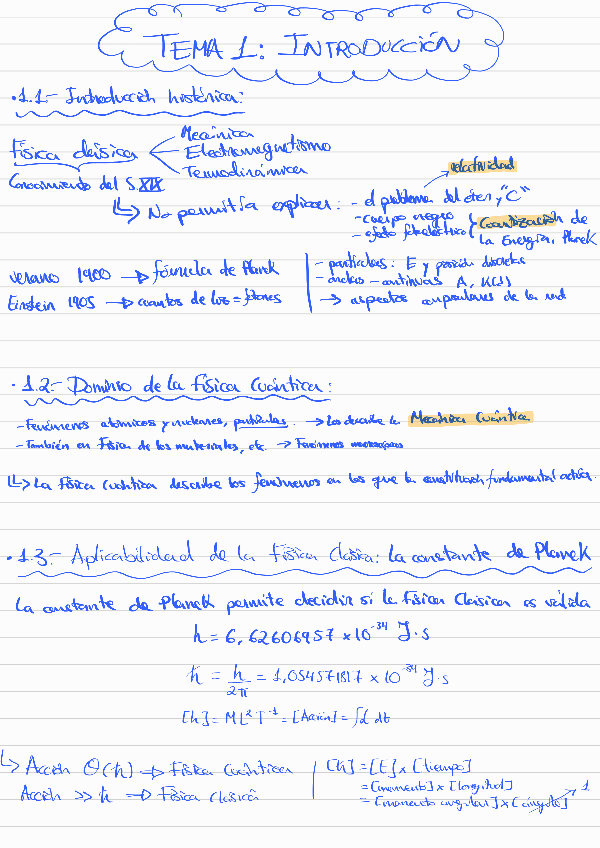 TEMA 1: INTRODUCCIÓN
• 1.1.- Introducción histórica:
Física clásica
Mecánica
Electromagnetismo
Termodinámica
Conocimiento del S. XIX
↳ No permitía explicar: - el problema del éter, "C"
relatividad
- cuerpo negro
- efecto fotoeléctrico
Cuantización de
la Energía, Planck
verano 1900 → fórmula de Planck
Einstein 1905 → cuantos de luz = fotones
- partículas: E y posición discretas
- ondas - continuas A, K(J)
→ aspectos corpusculares de la
• 1.2.- Dominio de la Física Cuántica:
- Fenómenos atómicos y nucleares, partículas. → Los describe la Mecánica Cuántica
- También en Física de los materiales, etc. → Fenómenos
↳ La Física Cuántica describe los fenómenos en los que la constitución fundamental
• 1.3.- Aplicabilidad de la Física Clásica: la constante de Planck
La constante de Planck permite decidir si la Física Clásica es válida
h = 6,62606957 × 10⁻³⁴ J·s
ħ = h/2π = 1,054571817 × 10⁻³⁴ J·s
[h] = ML²T⁻¹ = [Acción] = ∫L dt
↳ Acción O(ħ) → Física Cuántica
Acción >> ħ → Física Clásica
[ħ] = [E] × [tiempo]
= [momento] × [longitud]
= [momento angular] × [ángulo] 1